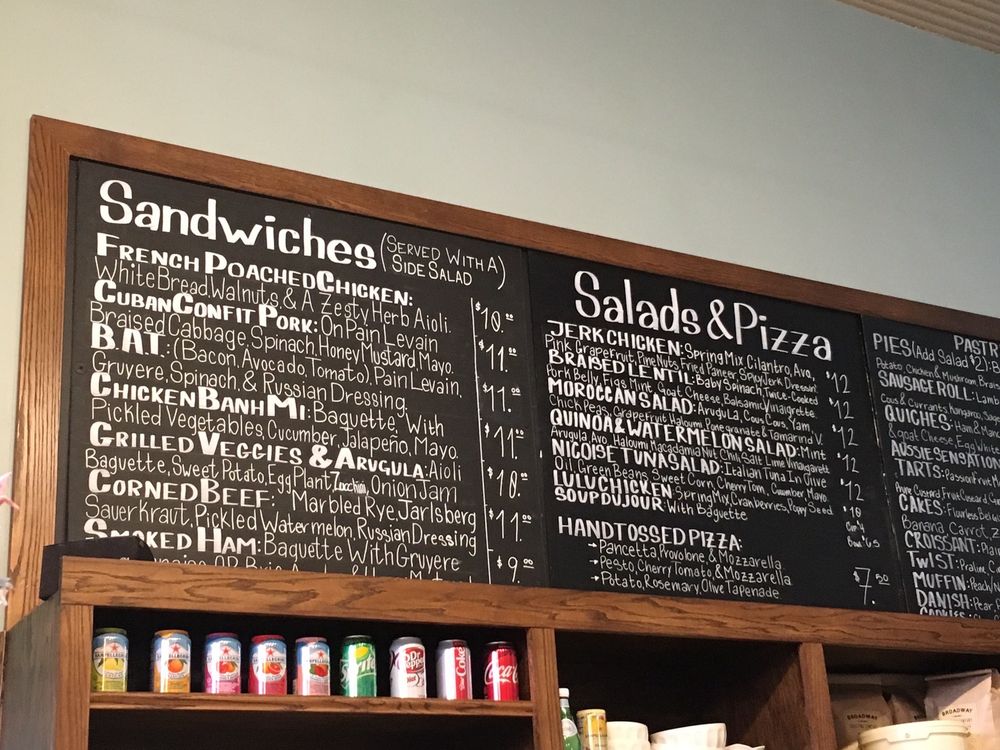 Sandwiches (SERVED WITH A)
SIDE SALAD
FRENCH POACHED CHICKEN:
White Bread, Walnuts, & A Zesty Herb Aioli. $10.00
CUBAN CONFIT PORK: On Pain Levain
Braised Cabbage, Spinach, Honey Mustard, Mayo. $11.00
B.A.T.: (Bacon, Avocado, Tomato), Pain Levain,
Gruyere, Spinach, & Russian Dressing. $11.00
CHICKEN BANH MI: Baguette, With
Pickled Vegetables, Cucumber, Jalapeño, Mayo. $11.00
GRILLED VEGGIES & ARUGULA: Aioli
Baguette, Sweet Potato, Egg Plant, Zucchini, Onion Jam $10.00
CORNED BEEF: Marbled Rye, Jarlsberg
Sauer Kraut, Pickled Watermelon, Russian Dressing $11.00
SMOKED HAM: Baguette With Gruyere $9.00
Salads & Pizza
JERK CHICKEN: Spring Mix, Cilantro, Avo,
Pink Grapefruit, Pine Nuts, Fried Paneer, Spicy Jerk Dressin' $12
BRAISED LENTIL: Baby Spinach, Twice-Cooked
Pork Belly, Eggs, Mint, Goat Cheese, Balsamic Vinaigrette $12
MOROCCAN SALAD: Arugula, Cous Cous, Yam
Chick Peas, Grapefruit, Haloumi, Pomegranate & Tamarind V. $12
QUINOA & WATERMELON SALAD: Mint
Arugula, Avo, Haloumi, Macadamia Nut, Chili Salt, Lime Vinaigarett $12
NICOISE TUNA SALAD: Italian Tuna In Olive
Oil, Green Beans, Sweet Corn, Cherry Tom, Cucumber, Mayo $12
LULU CHICKEN: Spring Mix, Cranberries, Poppy Seed $10
SOUP DU JOUR With Baguette
HAND TOSSED PIZZA:
→Pancetta, Provolone & Mozzarella
→Pesto, Cherry Tomato, & Mozzarella $7.50
→Potato, Rosemary, Olive Tapenade
PASTR
PIES (Add Salad $2):
Potato, Chicken & Mushroom
SAUSAGE ROLL: Lamb
Cous & Currants,
QUICHES: Ham &
& goat Cheese, Egg White
AUSSIE SENSATION
TARTS: Passionfruit
CAKES: Flourless
Banana, Carrot,
CROISSANT:
TWIST: Praline,
MUFFIN: Peach/
DANISH: Pear,
COOKIES:
SANPELLEGRINO
Sprite
Dr Pepper
Diet
Coke
Coca-Cola
BROADWAY
BROADWAY